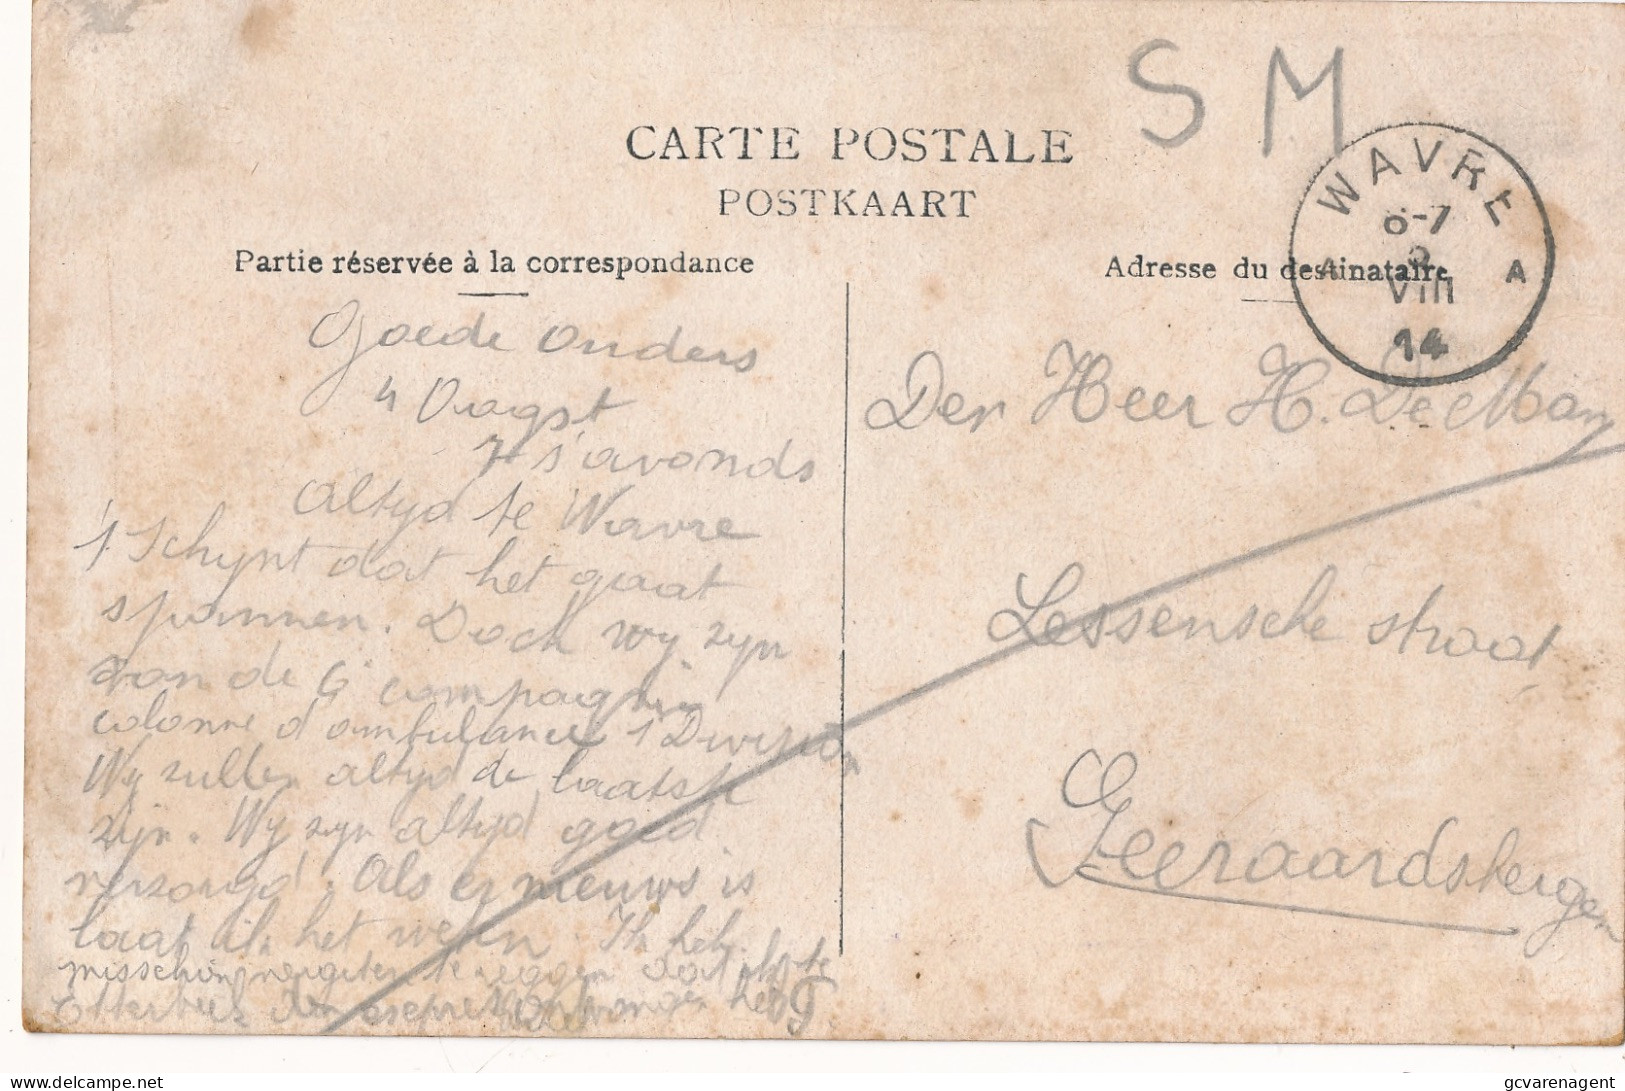 S M
CARTE POSTALE
POSTKAART
WAVRE
6-7
VIII
14
A A
Partie réservée à la correspondance
Adresse du destinataire
Goede Ouders
4 Oogst
7 s'avonds
Altyd te Wavre
't Schynt dat het gaat
spannen. Doch wy zyn
van de compagnie
colonne d'ambulance 1 Division
Wy zullen altyd de laatste
zijn. Wy zyn altyd goed
verzorgd. Als er nieuws is
laat ik het weten. Ik heb
misschien vergeten te zeggen dat ik te
Etterbeek den heb
Der Heer H. De Man
Lessensche straat
Geeraardsbergen
gcvarenagent
delcampe.net